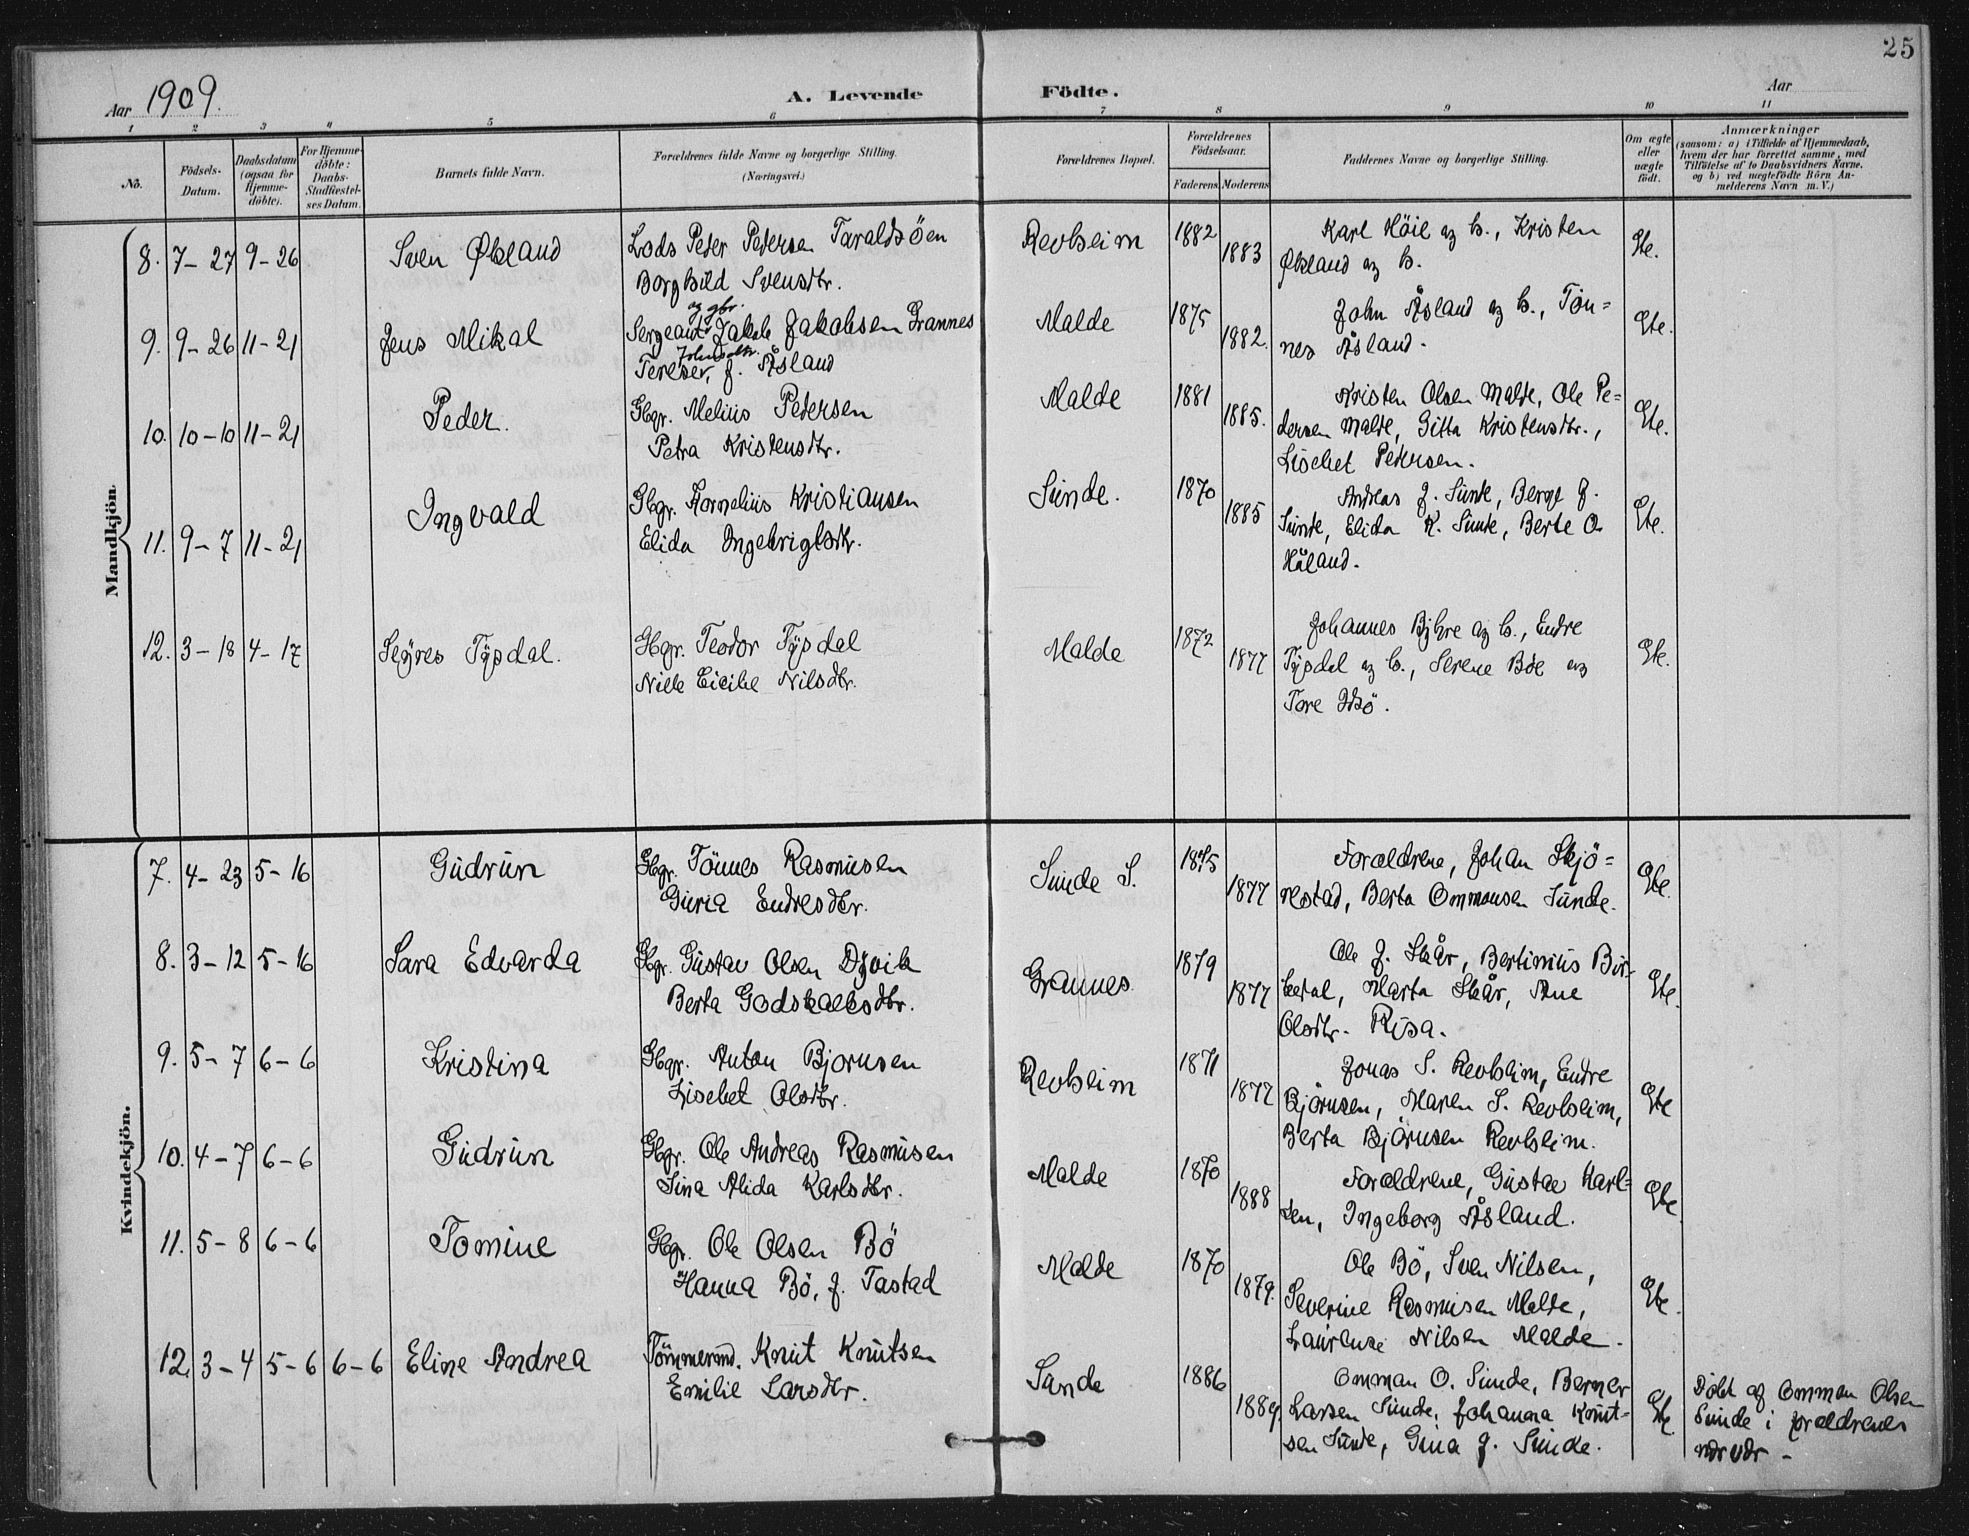 25
Aar 1909.
A. Levende Födte.
Aar
1 2 3 4 5 6 7 8 9 10 11
No.
Födsels-Datum.
Daabsdatum (ogsaa for Hjemme-döbte).
For Hjemme-döbte: Daabs-Stadfæstel-ses Datum.
Barnets fulde Navn.
Forældrenes fulde Navne og borgerlige Stilling.
(Næringsvei.)
Forældrenes Bopæl.
Forældrenes Födselsaar.
Faderens Moderens
Faddernes Navne og borgerlige Stilling.
Om ægte eller uægte födt.
Anmærkninger
(saasom: a) i Tilfælde af Hjemmedaab,
hvem der har forrettet samme, med
Tilföielse af to Daabsvidners Navne.
og b) ved uægtefödte Börn An-
melderens Navn m. V.)
Mandkjön
8. 7-27 9-26 Sven Økland Lods Peter Petersen Taraldsöen Revheim 1882 1883 Karl Höie og h., Kristen Egte.
Borghild Svensdtr. Økland og h.
og gbr.
9. 9-26 11-21 Jens Mikal Sergeant Jakob Jakobsen Grannes Malde 1875 1882. John Åsland og h., Tön= Egte.
Johnsdtr.
Terese, f. Åsland nes Åsland.
10. 10-10 11-21 Peder. Gbgr. Melius Petersen Malde 1881 1885. Kristen Olsen Malde, Ole Pe= Egte.
Petra Kristensdtr. dersen Malde, Gitta Kristensdtr.,
Lisebet Petersen.
11. 9-7 11-21 Ingvald Gbgr. Kornelius Kristiansen Sunde. 1870 1885 Andreas J. Sunde, Berge J. Egte.
Elida Ingebrigtsdtr. Sunde, Elida K. Sunde, Berte O.
Håland.
12. 3-18 4-17 Teodor Tysdal Malde 1872 1877 Johannes og h., Endre Egte.
Nilsdtr. Tysdal og h., Serene Böe og
Tore
Kvindekjön.
7. 4-23 5-16 Gudrun Gbgr. Tönnes Rasmusen Sunde S. 1875 1877 Forældrene, Johan Skjö= Egte.
Guria Endresdtr. restad, Berta Ommonsen Sunde.
8. 3-12 5-16 Sara Edvarda Gbgr. Gustav Olsen Dysvik Grannes 1879 1877 Ole J. Skår, Bertinius Bir= Egte.
Berta Godskalksdtr. keland, Marta Skår, Ane
Olsdtr. Risa.
9. 5-7 6-6 Kristina Gbgr. Anton Bjornsen Revheim 1871 1877 Jonas S. Revheim, Endre Egte
Lisebet Olsdtr. Björnsen, Maren S. Revheim,
Berta Björnsen Revheim.
10. 4-7 6-6 Gudrun Gbgr. Ole Andreas Rasmusen Malde 1870 1888 Forældrene, Gustav Karl= Egte.
Sina Alida Karlsdtr. sen, Ingeborg Åsland.
11. 5-8 6-6 Tomine Gbgr. Ole Olsen Bö Malde 1870 1879. Ole Bö, Sven Nilsen, Egte.
Hanna Bö, f. Tastad Severine Rasmusen Malde,
Laurense Nilsen Malde.
12. 3-4 5-6 6-6 Eline Andrea Tömmermd. Knut Knutsen Sunde 1886 1889. Omman O. Sunde, Berner Egte. Döbt af Omman Olsen
Emilie Larsdtr. Larsen Sunde, Johanna Knut= Sunde i forældrenes
sen Sunde, Gina J. Sunde. nærvær -